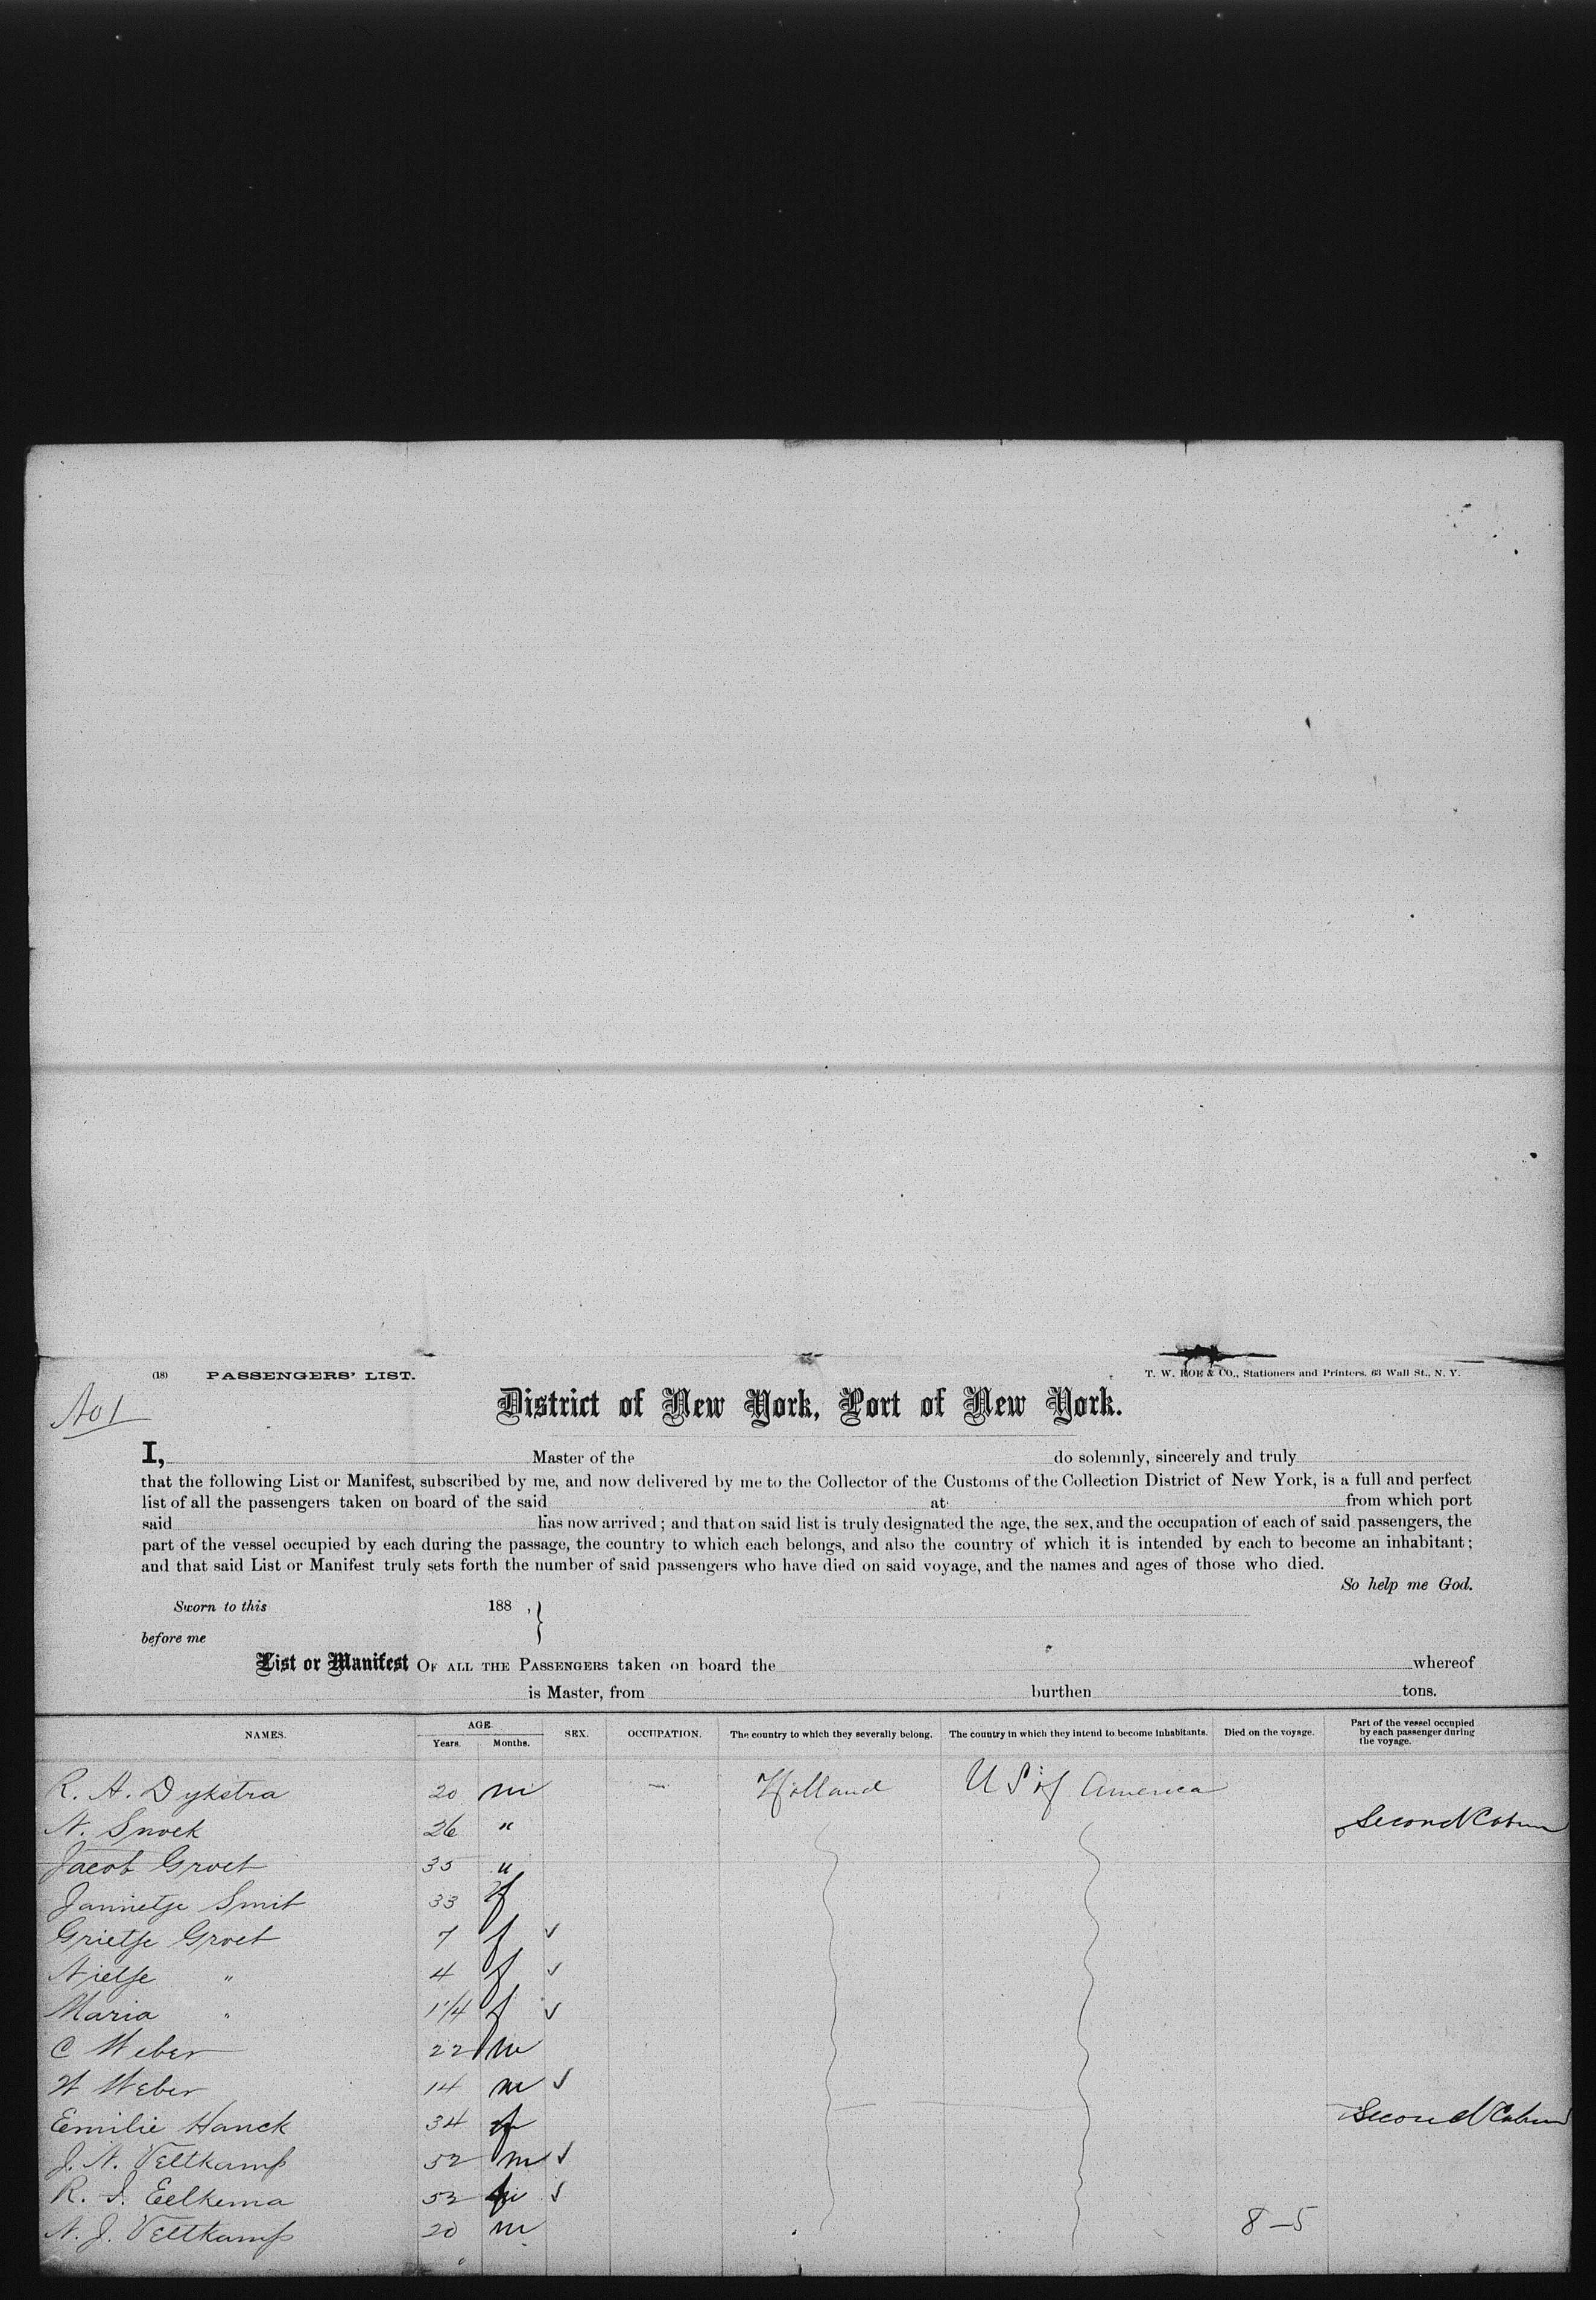 (18) PASSENGERS' LIST. T. W. ROE & CO., Stationers and Printers, 63 Wall St., N. Y.
No 1
District of New York, Port of New York.
I, Master of the do solemnly, sincerely and truly
that the following List or Manifest, subscribed by me, and now delivered by me to the Collector of the Customs of the Collection District of New York, is a full and perfect
list of all the passengers taken on board of the said at from which port
said has now arrived; and that on said list is truly designated the age, the sex, and the occupation of each of said passengers, the
part of the vessel occupied by each during the passage, the country to which each belongs, and also the country of which it is intended by each to become an inhabitant;
and that said List or Manifest truly sets forth the number of said passengers who have died on said voyage, and the names and ages of those who died.
So help me God.
Sworn to this 188 , }
before me
List or Manifest OF ALL THE PASSENGERS taken on board the whereof
is Master, from burthen tons.
NAMES. AGE. Years. Months. SEX. OCCUPATION. The country to which they severally belong. The country in which they intend to become inhabitants. Died on the voyage. Part of the vessel occupied by each passenger during the voyage.
R. A. Dykstra 20 m — Holland U S of America
N. Snoek 26 " Second Cabin
Jacob Groet 35 "
Jannetje Smit 33 f
Grietje Groet 7 f ✓
Nieltje " 4 f ✓
Maria " 1 1/4 f ✓
C Weber 22 m
W Weber 14 m ✓
Emilie Hanck 34 f Second Cabin
J. N. Veltkamp 52 m ✓
R. J. Eelkema 52 ✓
N. J. Veltkamp 20 m 8-5